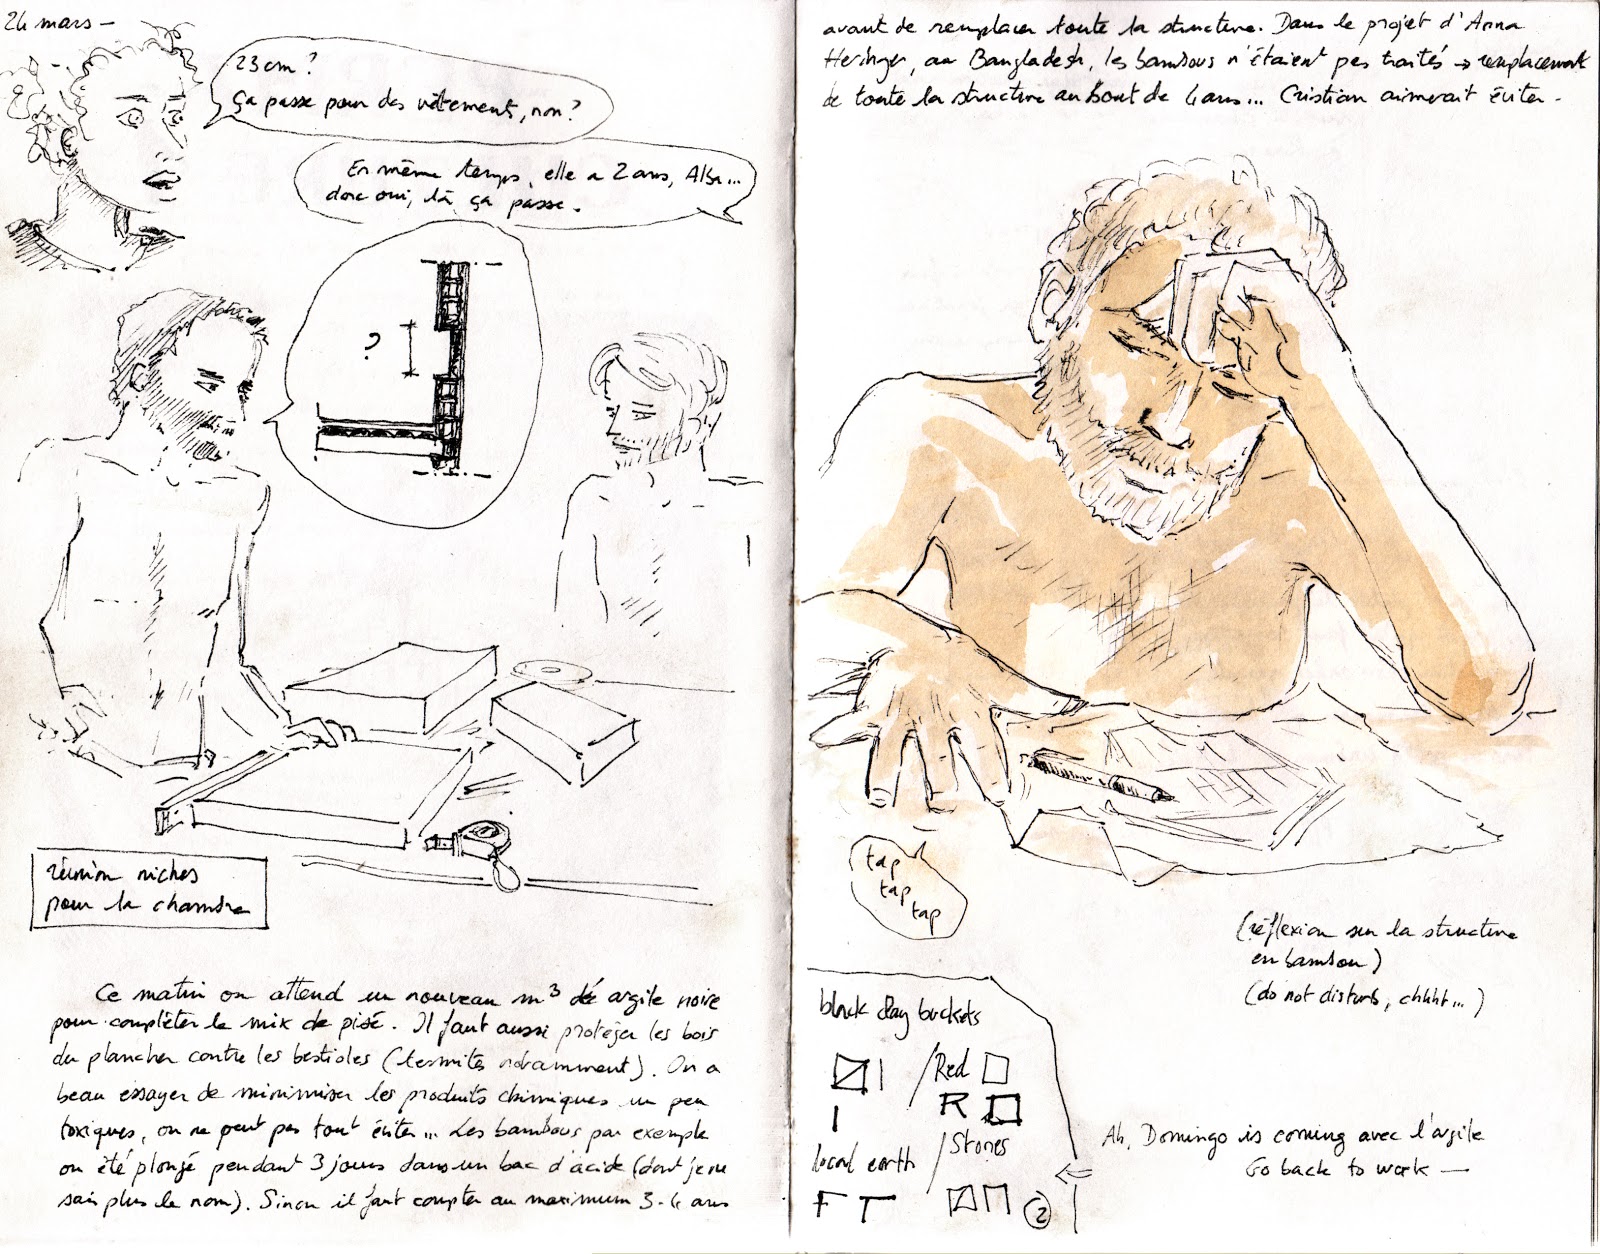 24 mars -
23cm ?
ça passe pour des vêtements, non ?
En même temps, elle a 2 ans, Alba...
donc oui, là, ça passe.
?
réunion niches
pour la chambre
Ce matin on attend un nouveau m³ de argile noire
pour compléter le mix de pisé. Il faut aussi protéger les bois
du plancher contre les bestioles (termites notamment). On a
beau essayer de minimiser les produits chimiques un peu
toxiques, on ne peut pas tout éviter... Les bambous par exemple
on été plongé pendant 3 jours dans un bac d'acide (dont je ne
sais plus le nom). Sinon il faut compter au maximum 3-4 ans
avant de remplacer toute la structure. Dans le projet d'Anna
Heringer, au Bangladesh, les bambous n'étaient pas traités → remplacement
de toute la structure au bout de 4 ans... Cristian aimerait éviter.
tap
tap
tap
(réflexion sur la structure
en bambou)
(do not disturb, chhht...)
black clay buckets
/Red
R
local earth /Stones
2
Ah, Domingo is coming avec l'argile
Go back to work —